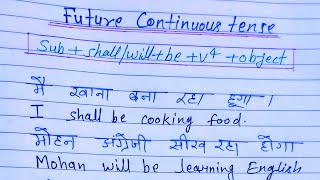 Future Continuous tense
Sub + shall/will + be + v⁴ + object
मै खाना बना रहा हूगा ।
I shall be cooking food.
मोहन अंग्रेजी सीख रहा होगा
Mohan will be learning English